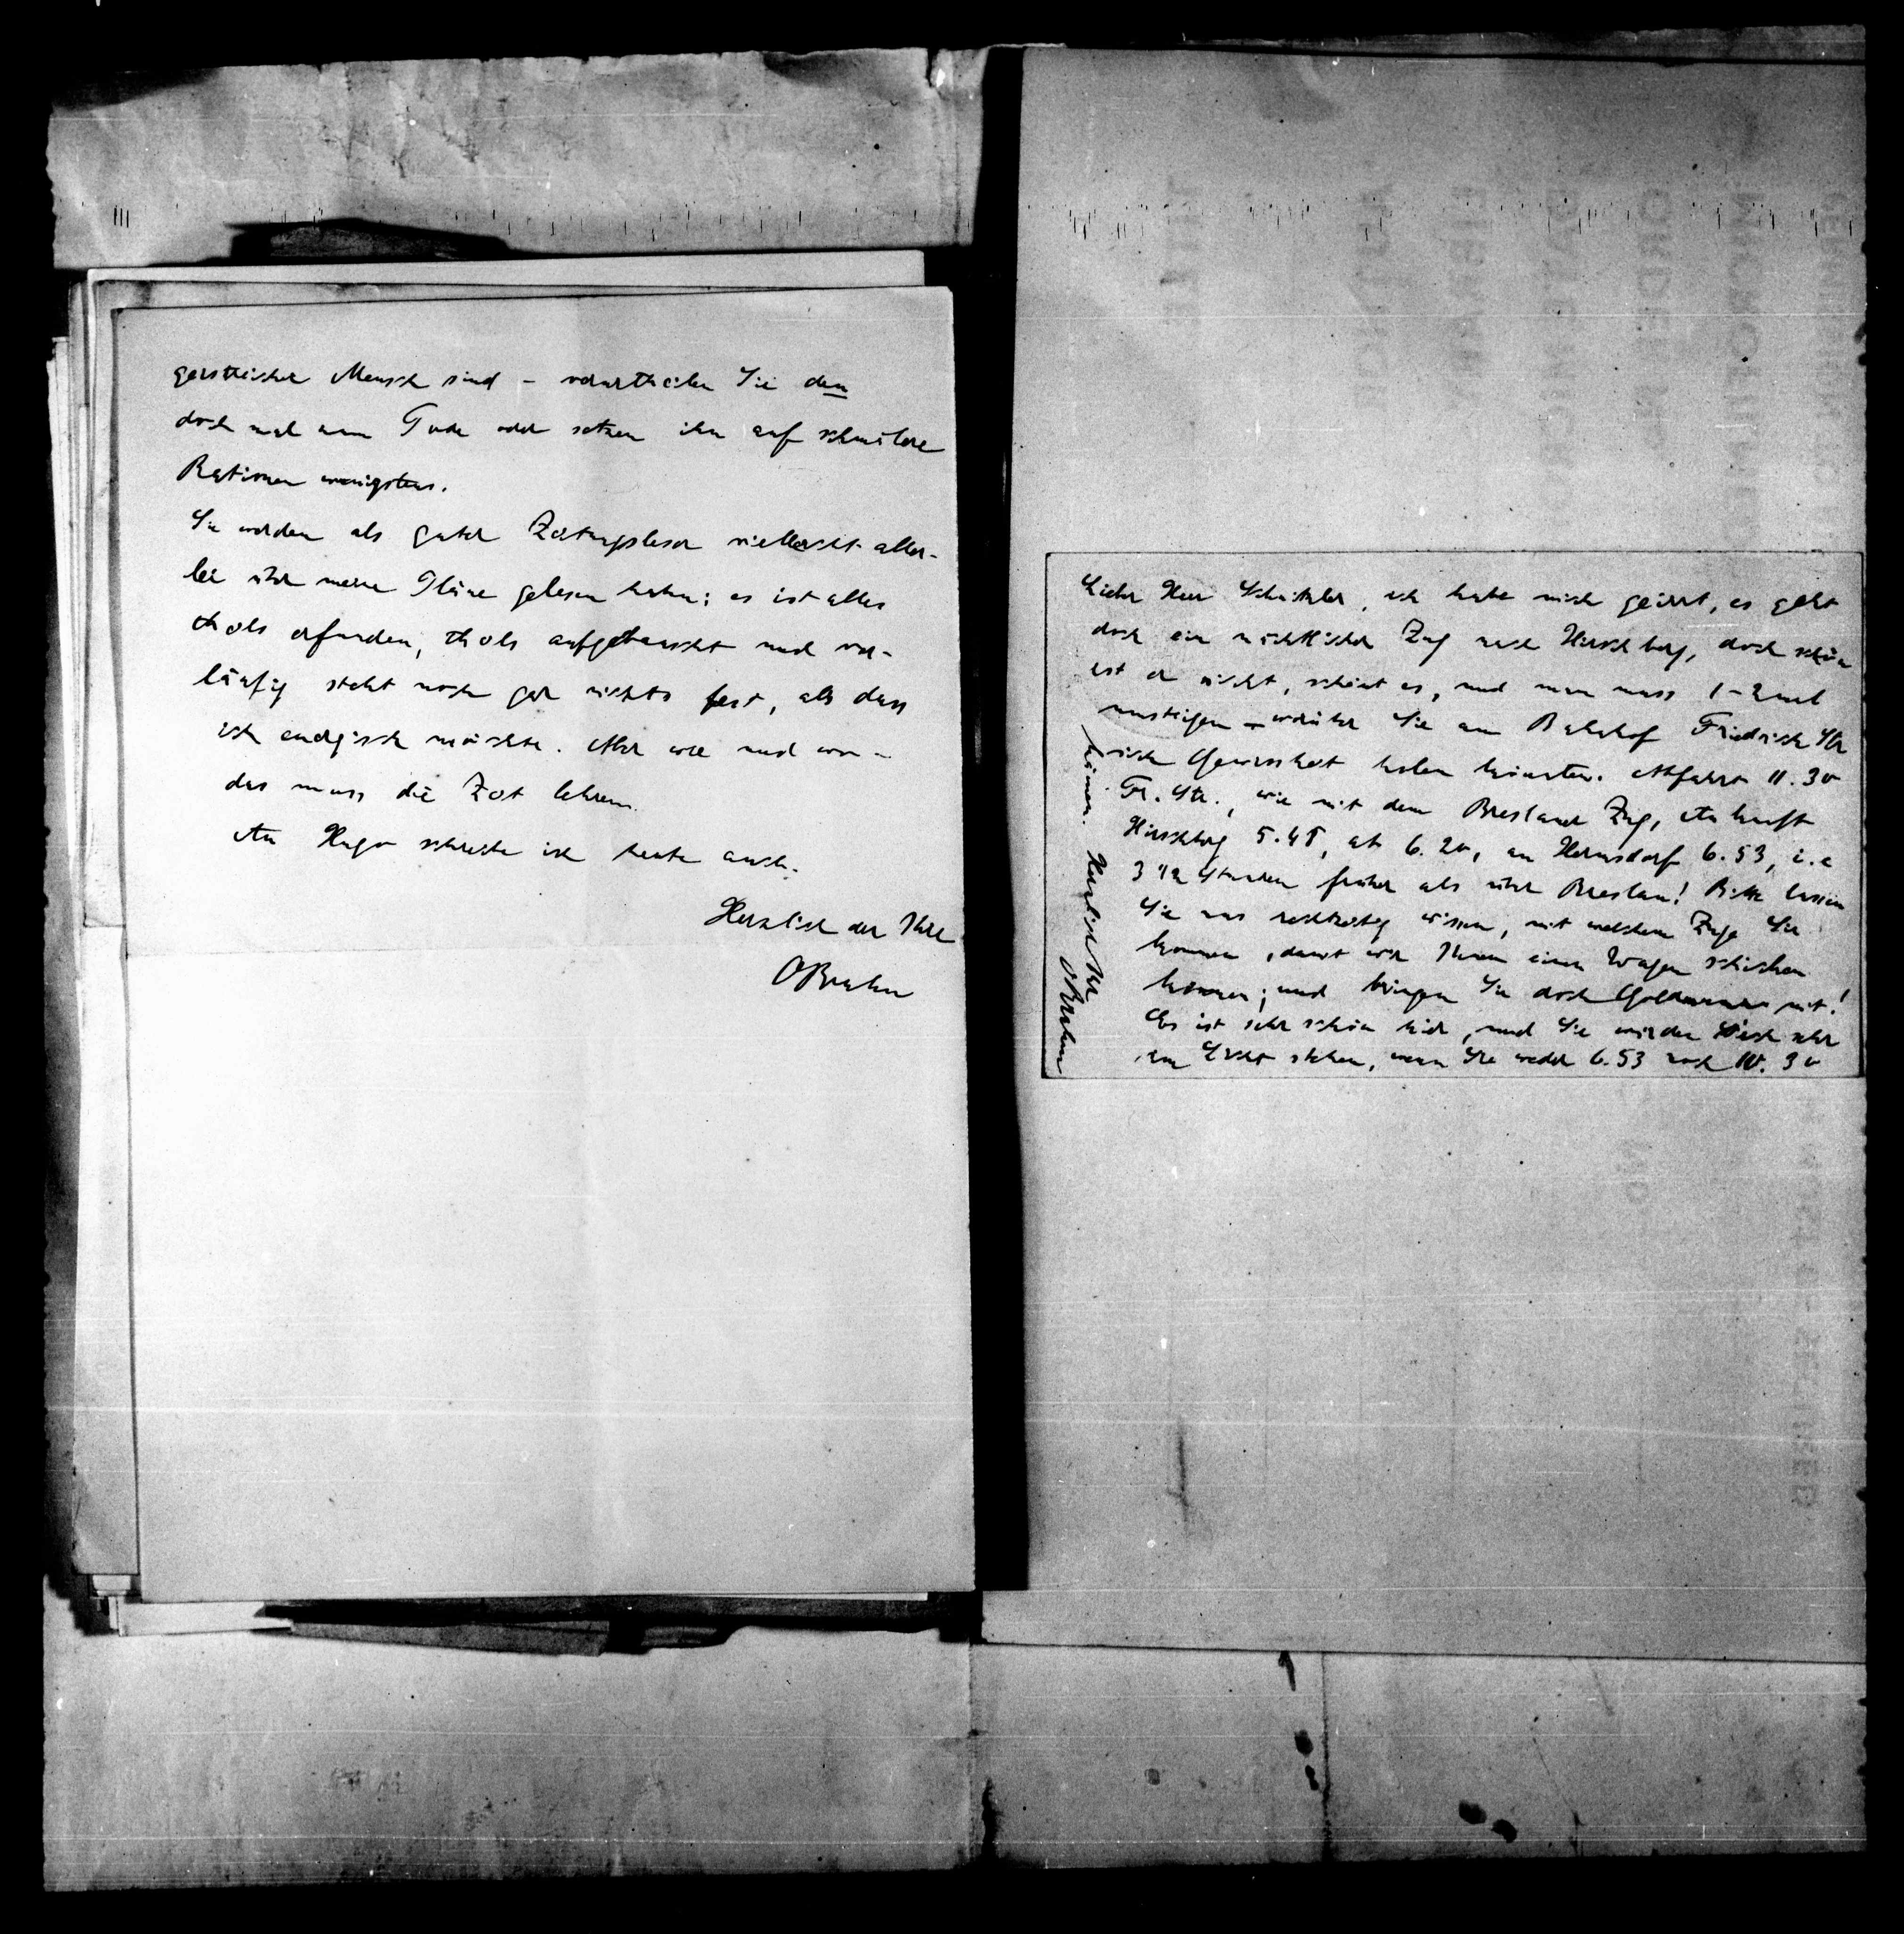 geistreicher Mensch sind – verurtheilen Sie den
doch mal zum Tode oder setzen ihn auf schmälere
Rationen wenigstens.
Sie werden als guter Zeitungsleser vielleicht aller-
lei über meine Pläne gelesen haben; es ist alles
theils erfunden, theils aufgebauscht und vor-
läufig steht noch gar nichts fest, als dass
ich energisch möchte. Aber wie und wo –
das muss die Zeit lehren.
An Hugo schreibe ich heute auch.
Herzlich der Ihre
OBrahm
Lieber Herr Schnitzler, ich habe mich geirrt, es geht
doch ein nächtlicher Zug nach Hirschberg, doch schön
ist er nicht, scheint es, und man muss 1-2 mal
umsteigen – worüber Sie am Bahnhof Friedrich Str
sich Gewissheit holen könnten. Abfahrt 11.30
Fr. Str., wie mit dem Breslauer Zug, Ankunft
Hirschbg 5.45, ab 6.20, an Hermsdorf 6.53, i.e
3 1/2 Stunden früher als über Breslau! Bitte lassen
Sie uns rechtzeitig wissen, mit welchem Zuge Sie
kommen, damit wir Ihnen einen Wagen schicken
können; und bringen Sie doch Goldmann mit!
Es ist sehr schön hier, und Sie würden sich sehr
im Licht stehen, wenn Sie weder 6.53 noch 10.30
kämen. Herzlich Ihr
OBrahm